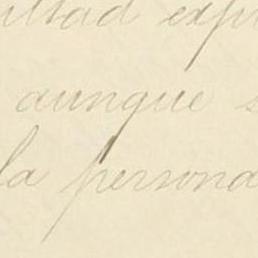 ultad exp
aunque s
la persona